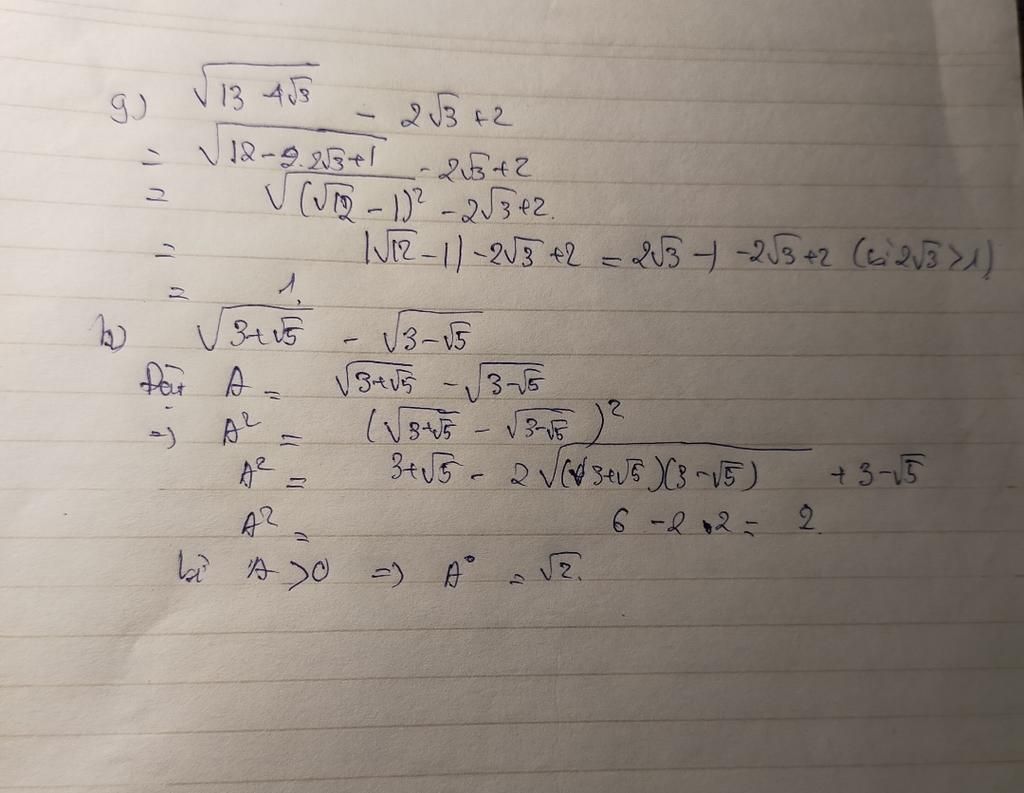 g) √(13 - 4√3) - 2√3 + 2
= √(12 - 2.2√3 + 1) - 2√3 + 2
= √((√12 - 1)²) - 2√3 + 2.
= |√12 - 1| - 2√3 + 2 = 2√3 - 1 - 2√3 + 2 (vì 2√3 > 1)
= 1.
h) √(3+√5) - √(3-√5)
Đặt A = √(3+√5) - √(3-√5)
=> A² = (√(3+√5) - √(3-√5))²
A² = 3+√5 - 2√((3+√5)(3-√5)) + 3-√5
A² = 6 - 2.2 = 2.
Vì A > 0 => A = √2.